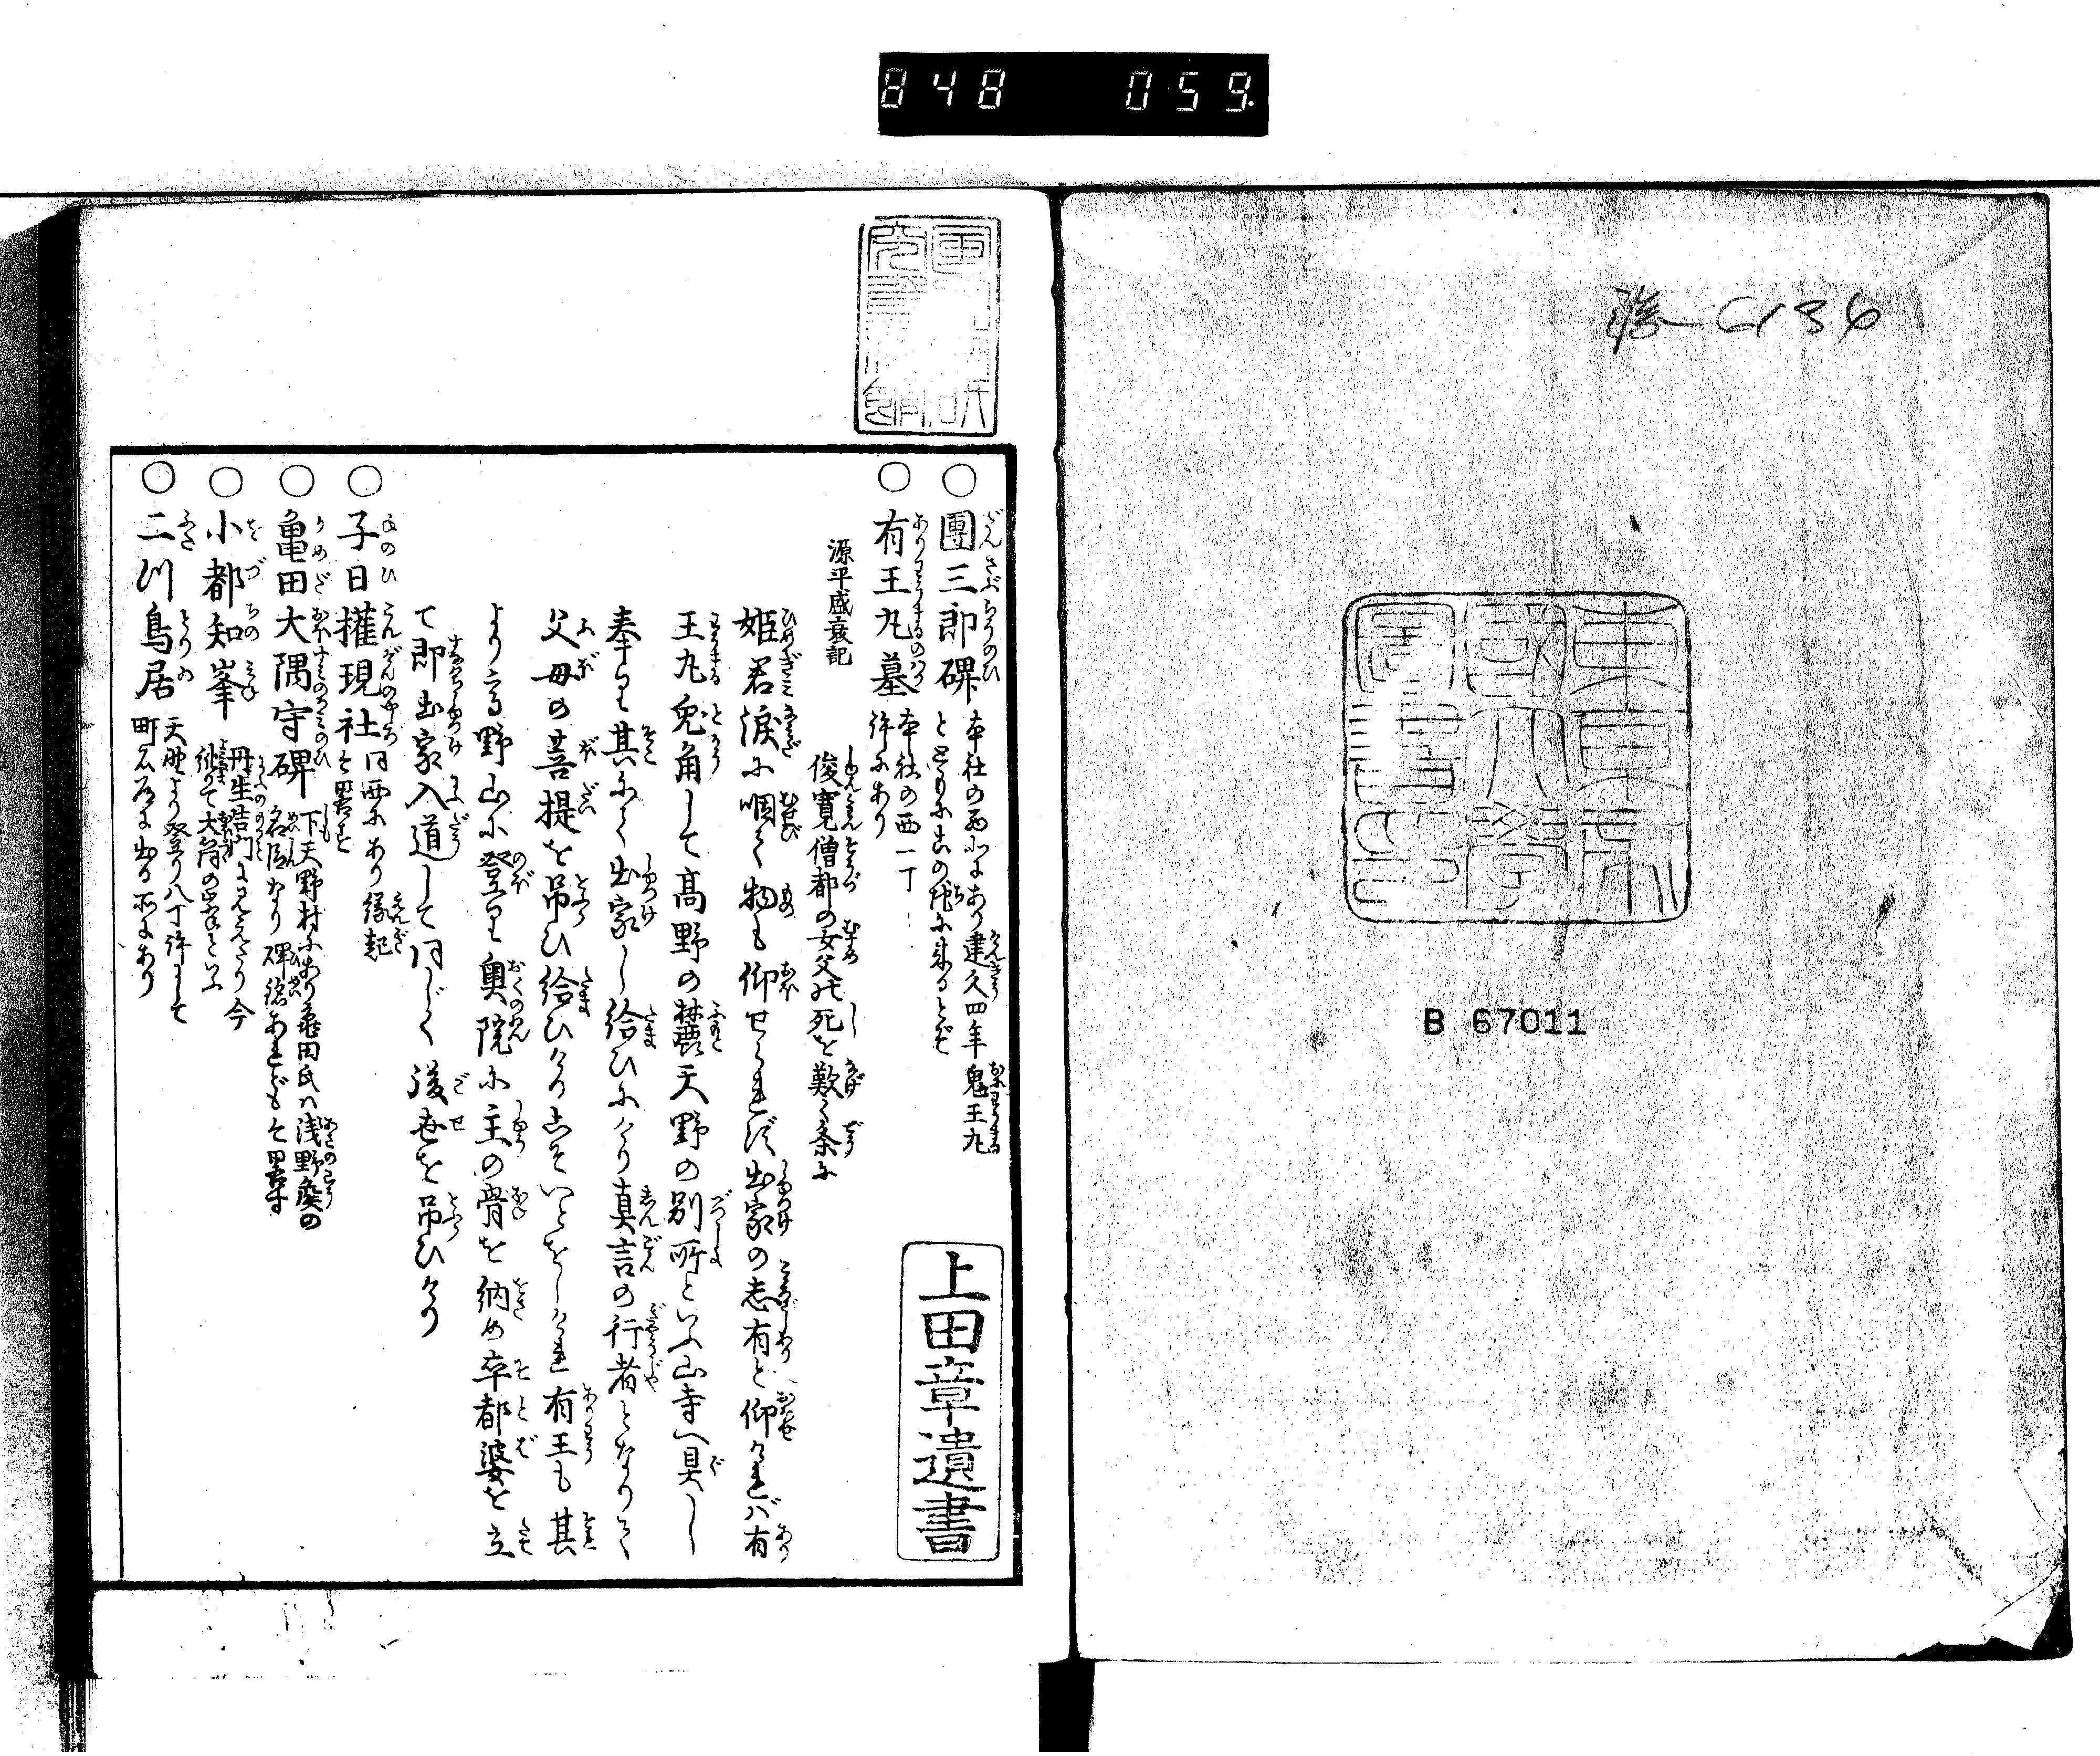 848 059.
6136
東京帝
國大學
圖書印
B 67011
○團三郎碑 本社の西北にあり建久四年鬼王丸
とともに此の地に来るとぞ
○有王丸墓 本社の西一丁
許にあり
源平盛衰記 俊寛僧都の女父の死を歎く条に
姫君涙に咽て物も仰せられず出家の志有と仰ければ有
王丸兎角して高野の麓天野の別所といふ山寺へ具し
奉りて其にて出家し給ひにけり真言の行者となりて
父母の菩提を吊ひ給ひけりこそいとをしけれ有王も其
より高野山に登りて奥院に主の骨を納め卒都婆を立
て即出家入道して同じく後世を吊ひけり
○子日權現社 同西にあり縁起
を畧す
○亀田大隅守碑 下天野村にあり亀田氏は浅野侯の
名臣なり碑銘あれども畧す
○小都知峯 丹生告門に見えたり今
訛りて大角の峯といふ
○二川鳥居 天野より登り八丁許にして
町石道に出る所にあり
上田章遺書